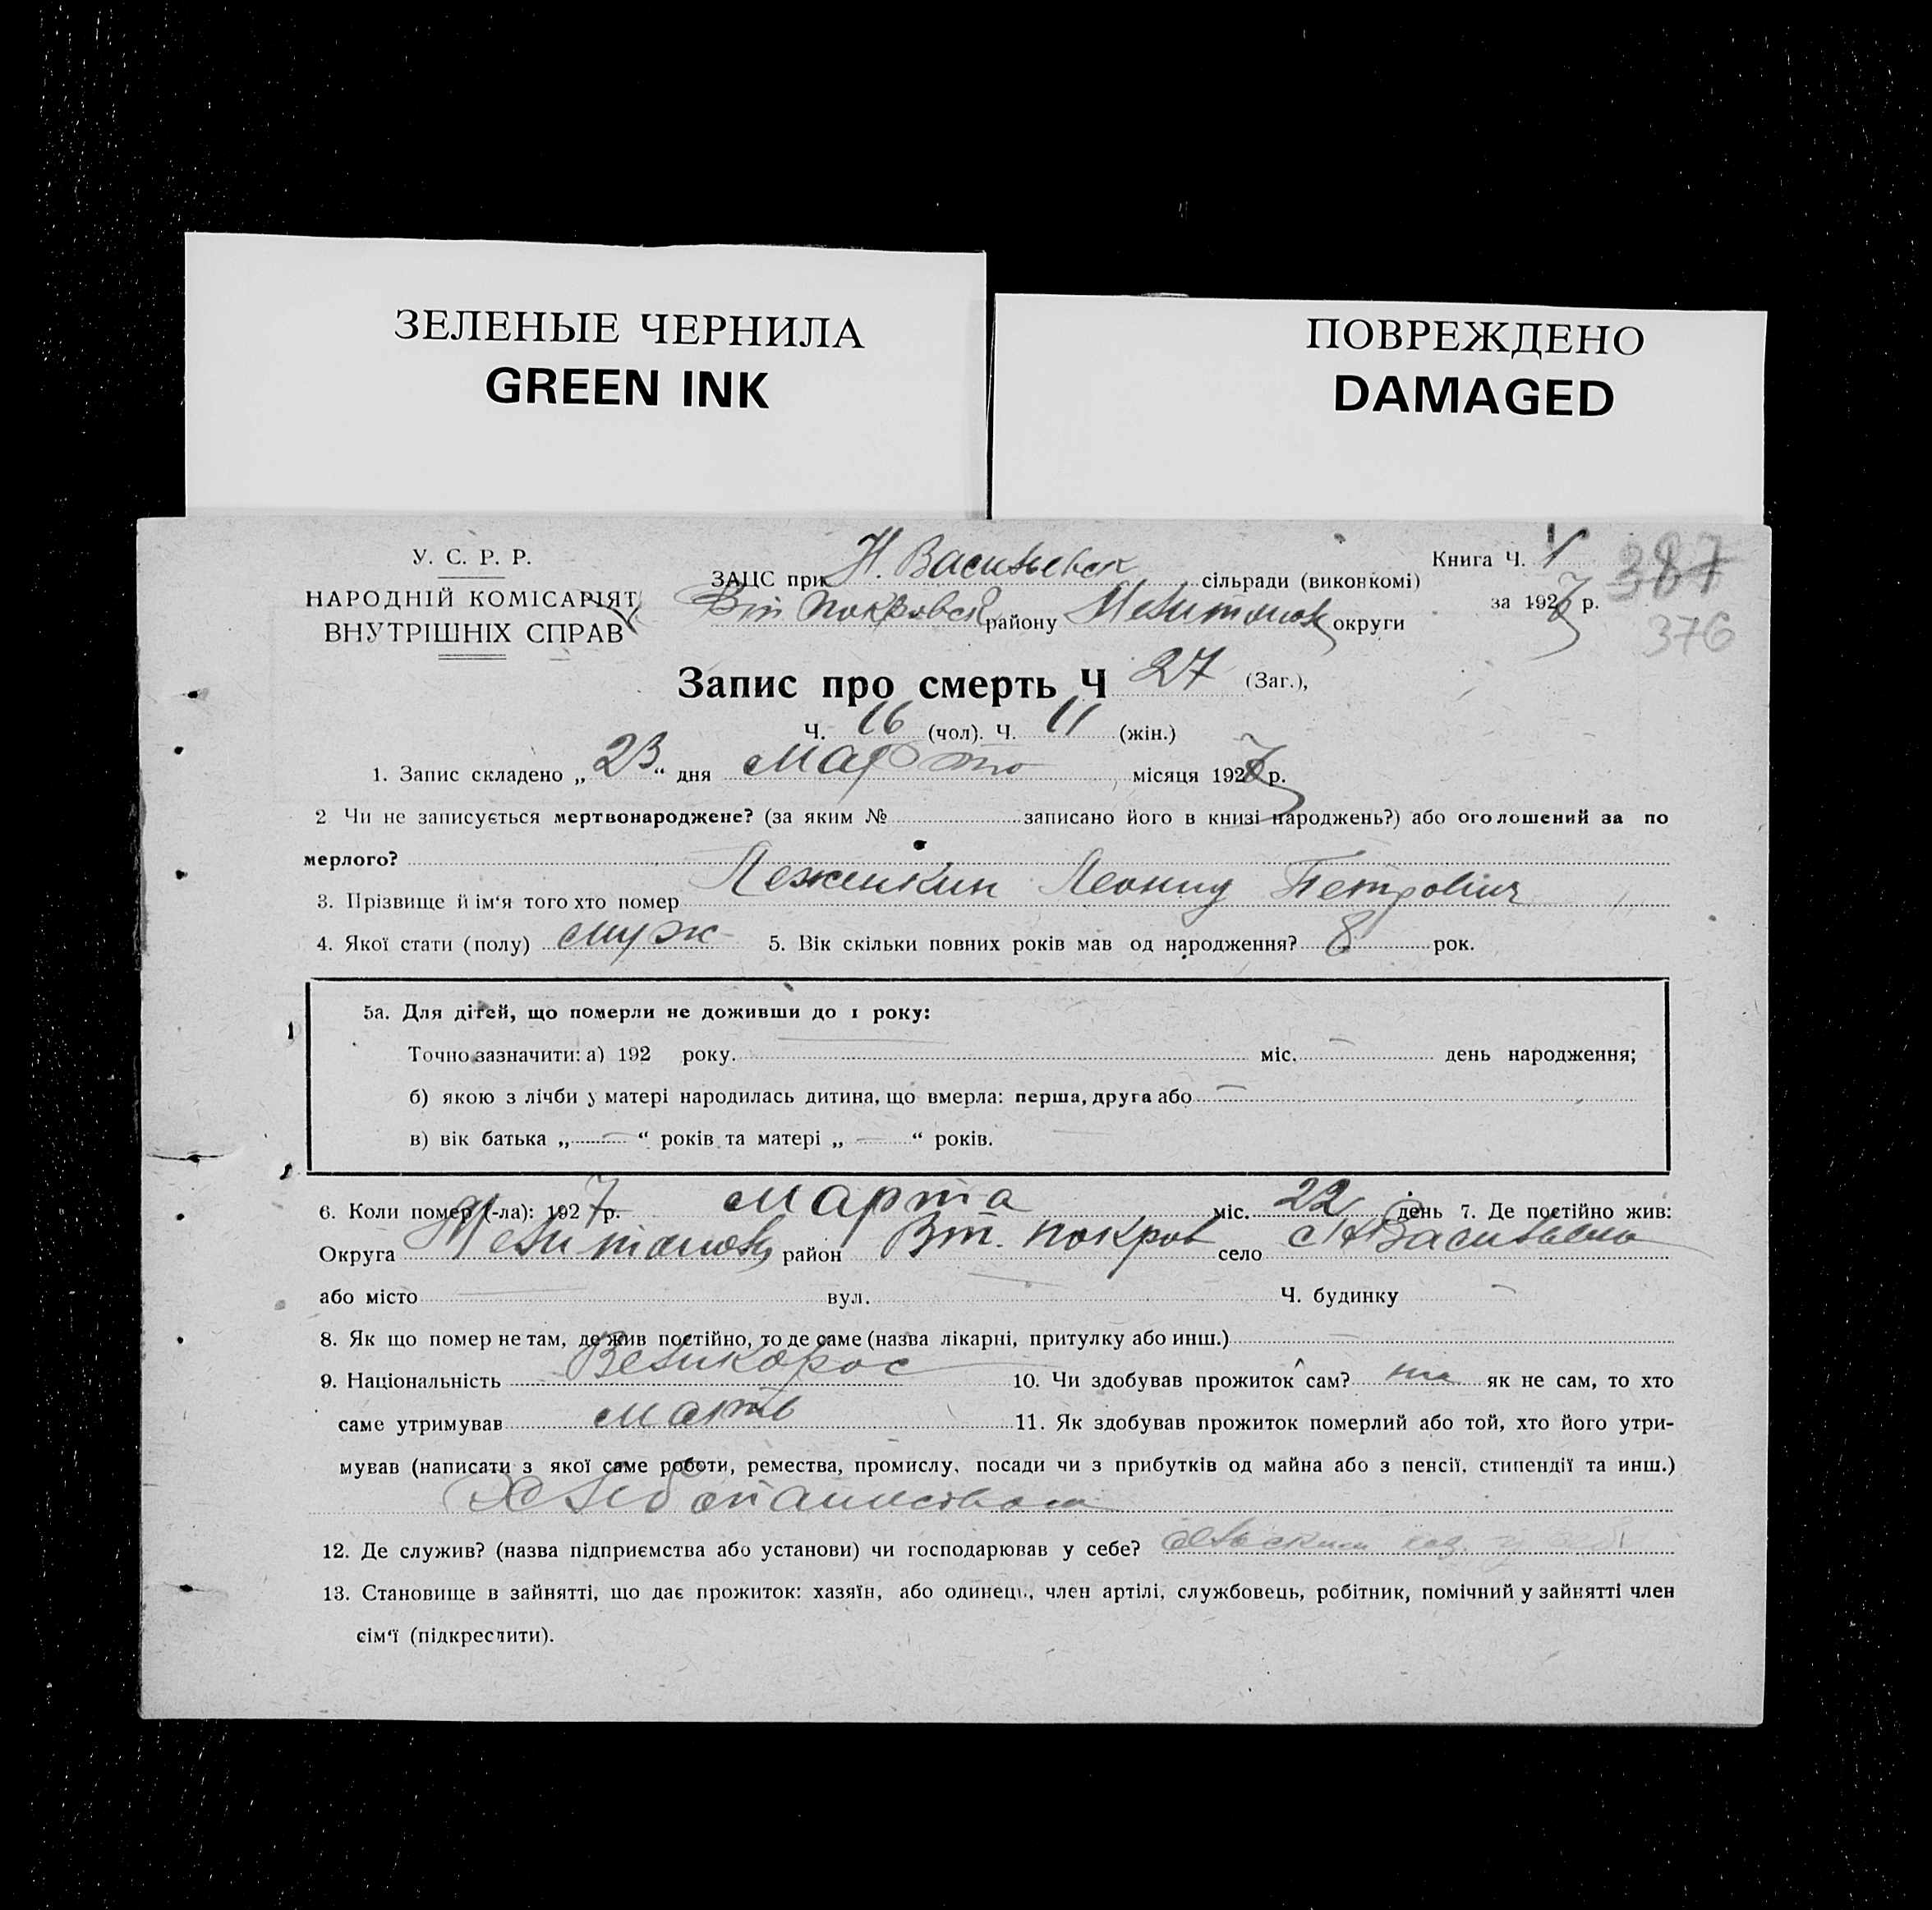 ЗЕЛЕНЫЕ ЧЕРНИЛА
GREEN INK
ПОВРЕЖДЕНО
DAMAGED
У. С. Р. Р.
НАРОДНІЙ КОМІСАРІЯТ
ВНУТРІШНІХ СПРАВ
ЗАЦС при Н. Васильевск сільради (виконкомі)
Вт Покровск району Мелитопол округи
Книга Ч. 1
за 1927 р.
387
376
Запис про смерть Ч 27 (Заг.),
Ч. 16 (чол). Ч. 11 (жін.)
1. Запис складено „ 23 “ дня марта місяця 1927 р.
2 Чи не записується мертвонароджене? (за яким № записано його в книзі народжень?) або оголошений за по
мерлого?
3. Прізвище й ім‘я того хто помер Лежепкин Леонид Петрович
4. Якої стати (полу) муж 5. Вік скільки повних років мав од народження? 8 рок.
5а. Для дітей, що померли не доживши до 1 року:
Точно зазначити: а) 192 року. міс. день народження;
б) якою з лічби у матері народилась дитина, що вмерла: перша, друга або
в) вік батька „ “ років та матері „ “ років.
6. Коли помер (-ла): 1927 р. марта міс. 22 день 7. Де постійно жив:
Округа Мелитополь район Вт. Покров село с Н Васильевка
або місто вул. Ч. будинку
8. Як що помер не там, де жив постійно, то де саме (назва лікарні, притулку або инш.)
9. Національність Великорос 10. Чи здобував прожиток сам? як не сам, то хто
саме утримував мать 11. Як здобував прожиток померлий або той, хто його утри-
мував (написати з якої саме роботи, ремества, промислу, посади чи з прибутків од майна або з пенсії, стипендії та инш.)
Хлебопашеством
12. Де служив? (назва підприємства або установи) чи господарював у себе?
13. Становище в зайнятті, що дає прожиток: хазяїн, або одинець, член артілі, службовець, робітник, помічний у зайнятті член
сім‘ї (підкреслити).